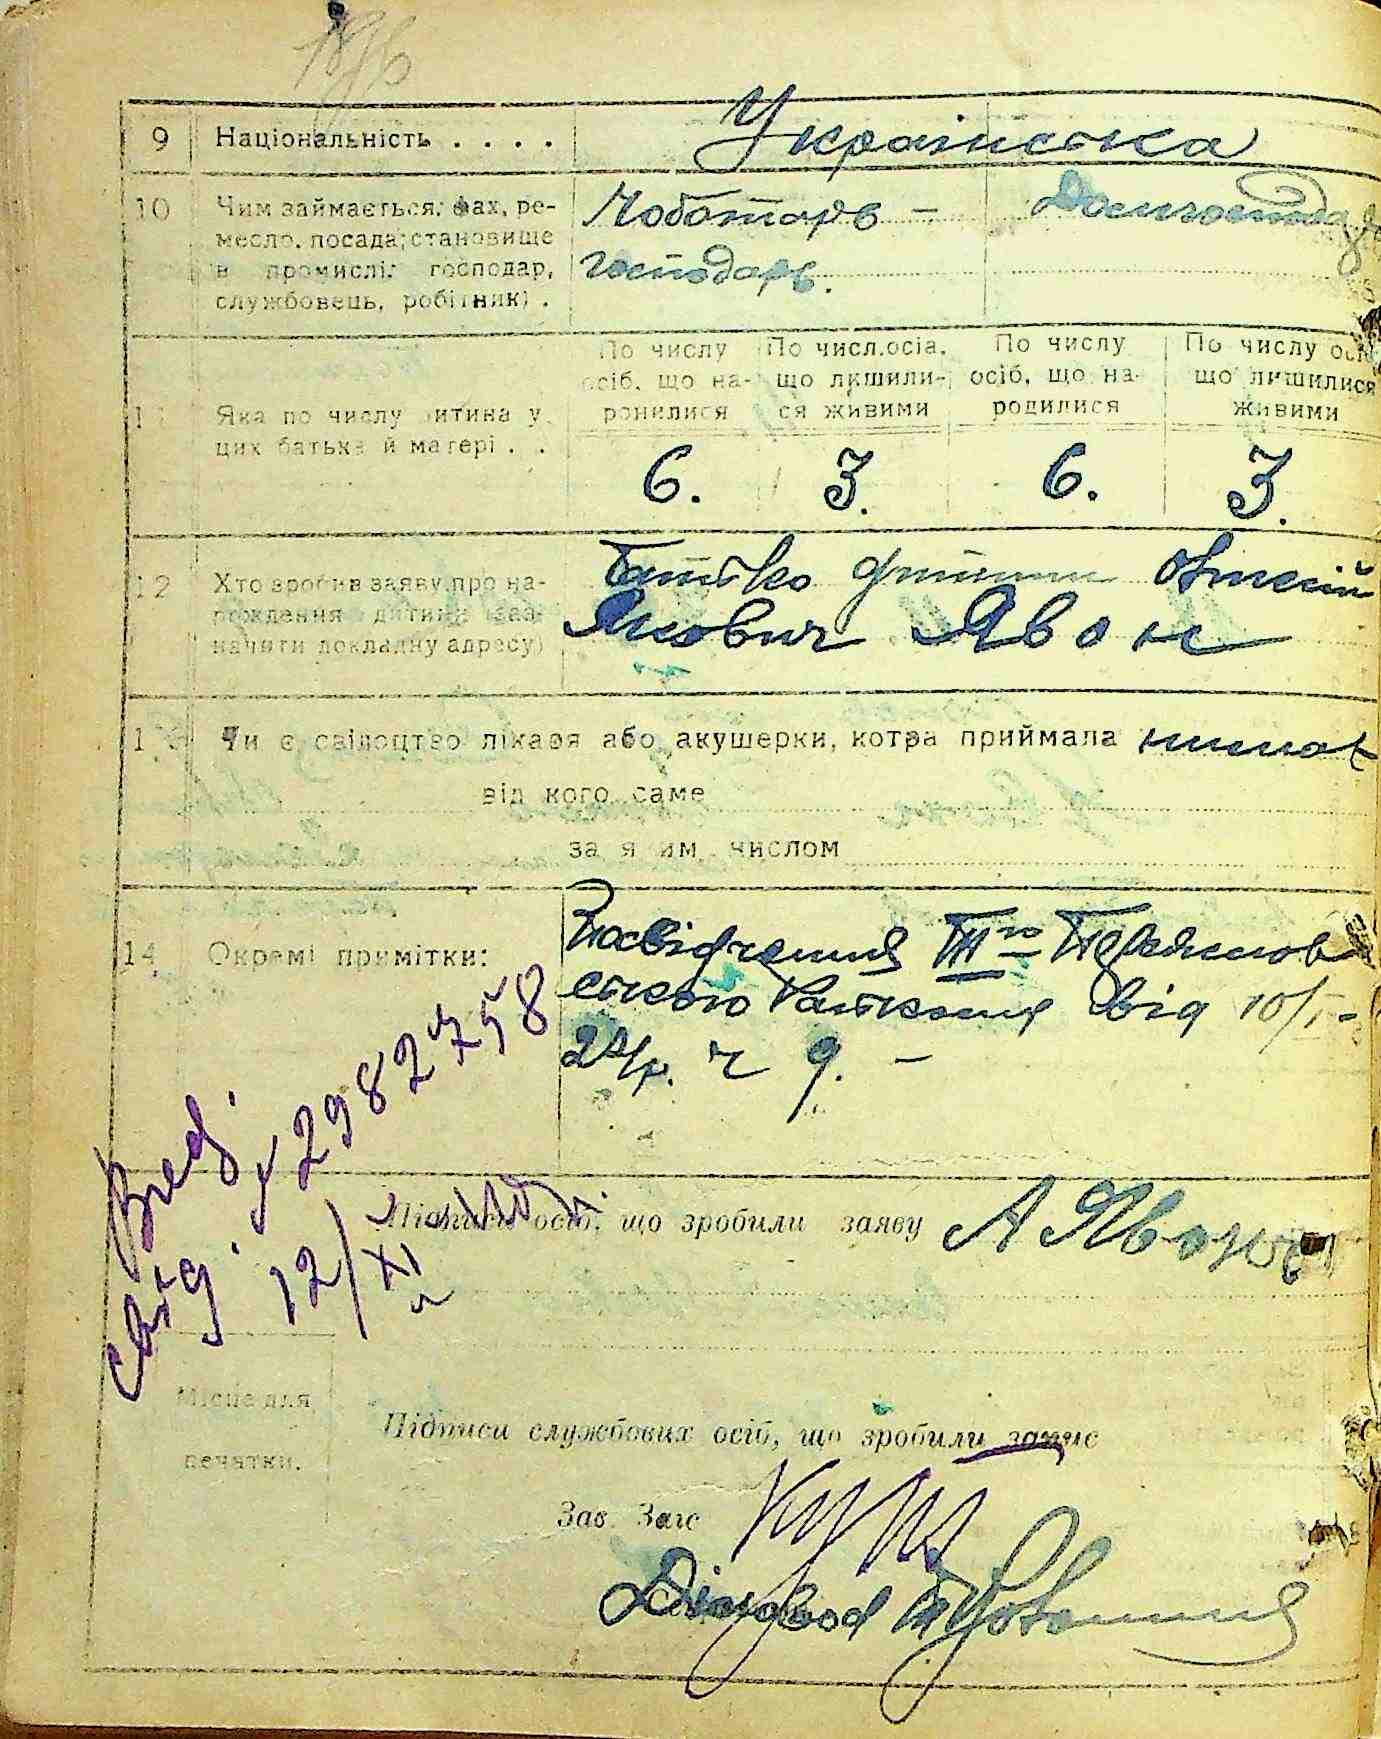 9 Національність . . . . Українська
10 Чим займається: фах, ре-
месло, посада; становище
в промислі: господар,
службовець, робітник) .
Чоботарь – 
господарь.
По числу осіб, що на-
ронилися
По числ.осіа, що лишили-
ся живими
По числу осіб, що на-
родилися
По числу осіб
що лишилися
живими
11 Яка по числу дитина у
цих батька й матері . .
6. 3. 6. 3.
12 Хто зробив заяву про на-
рождення дитини (заз-
начити докладну адресу)
Батько дитини Олексій
Якович Явон
13 Чи є свідоцтво лікаря або акушерки, котра приймала немає
від кого саме
за яким числом
14 Окремі примітки:
Посвідчення III го
від 10/I –
р. ч 9. –
свід. 2982758
12/XI
Підписи осіб, що зробили заяву А Явон
Місце для
печатки.
Підписи службових осіб, що зробили запис
Зав. Загс
Діловод